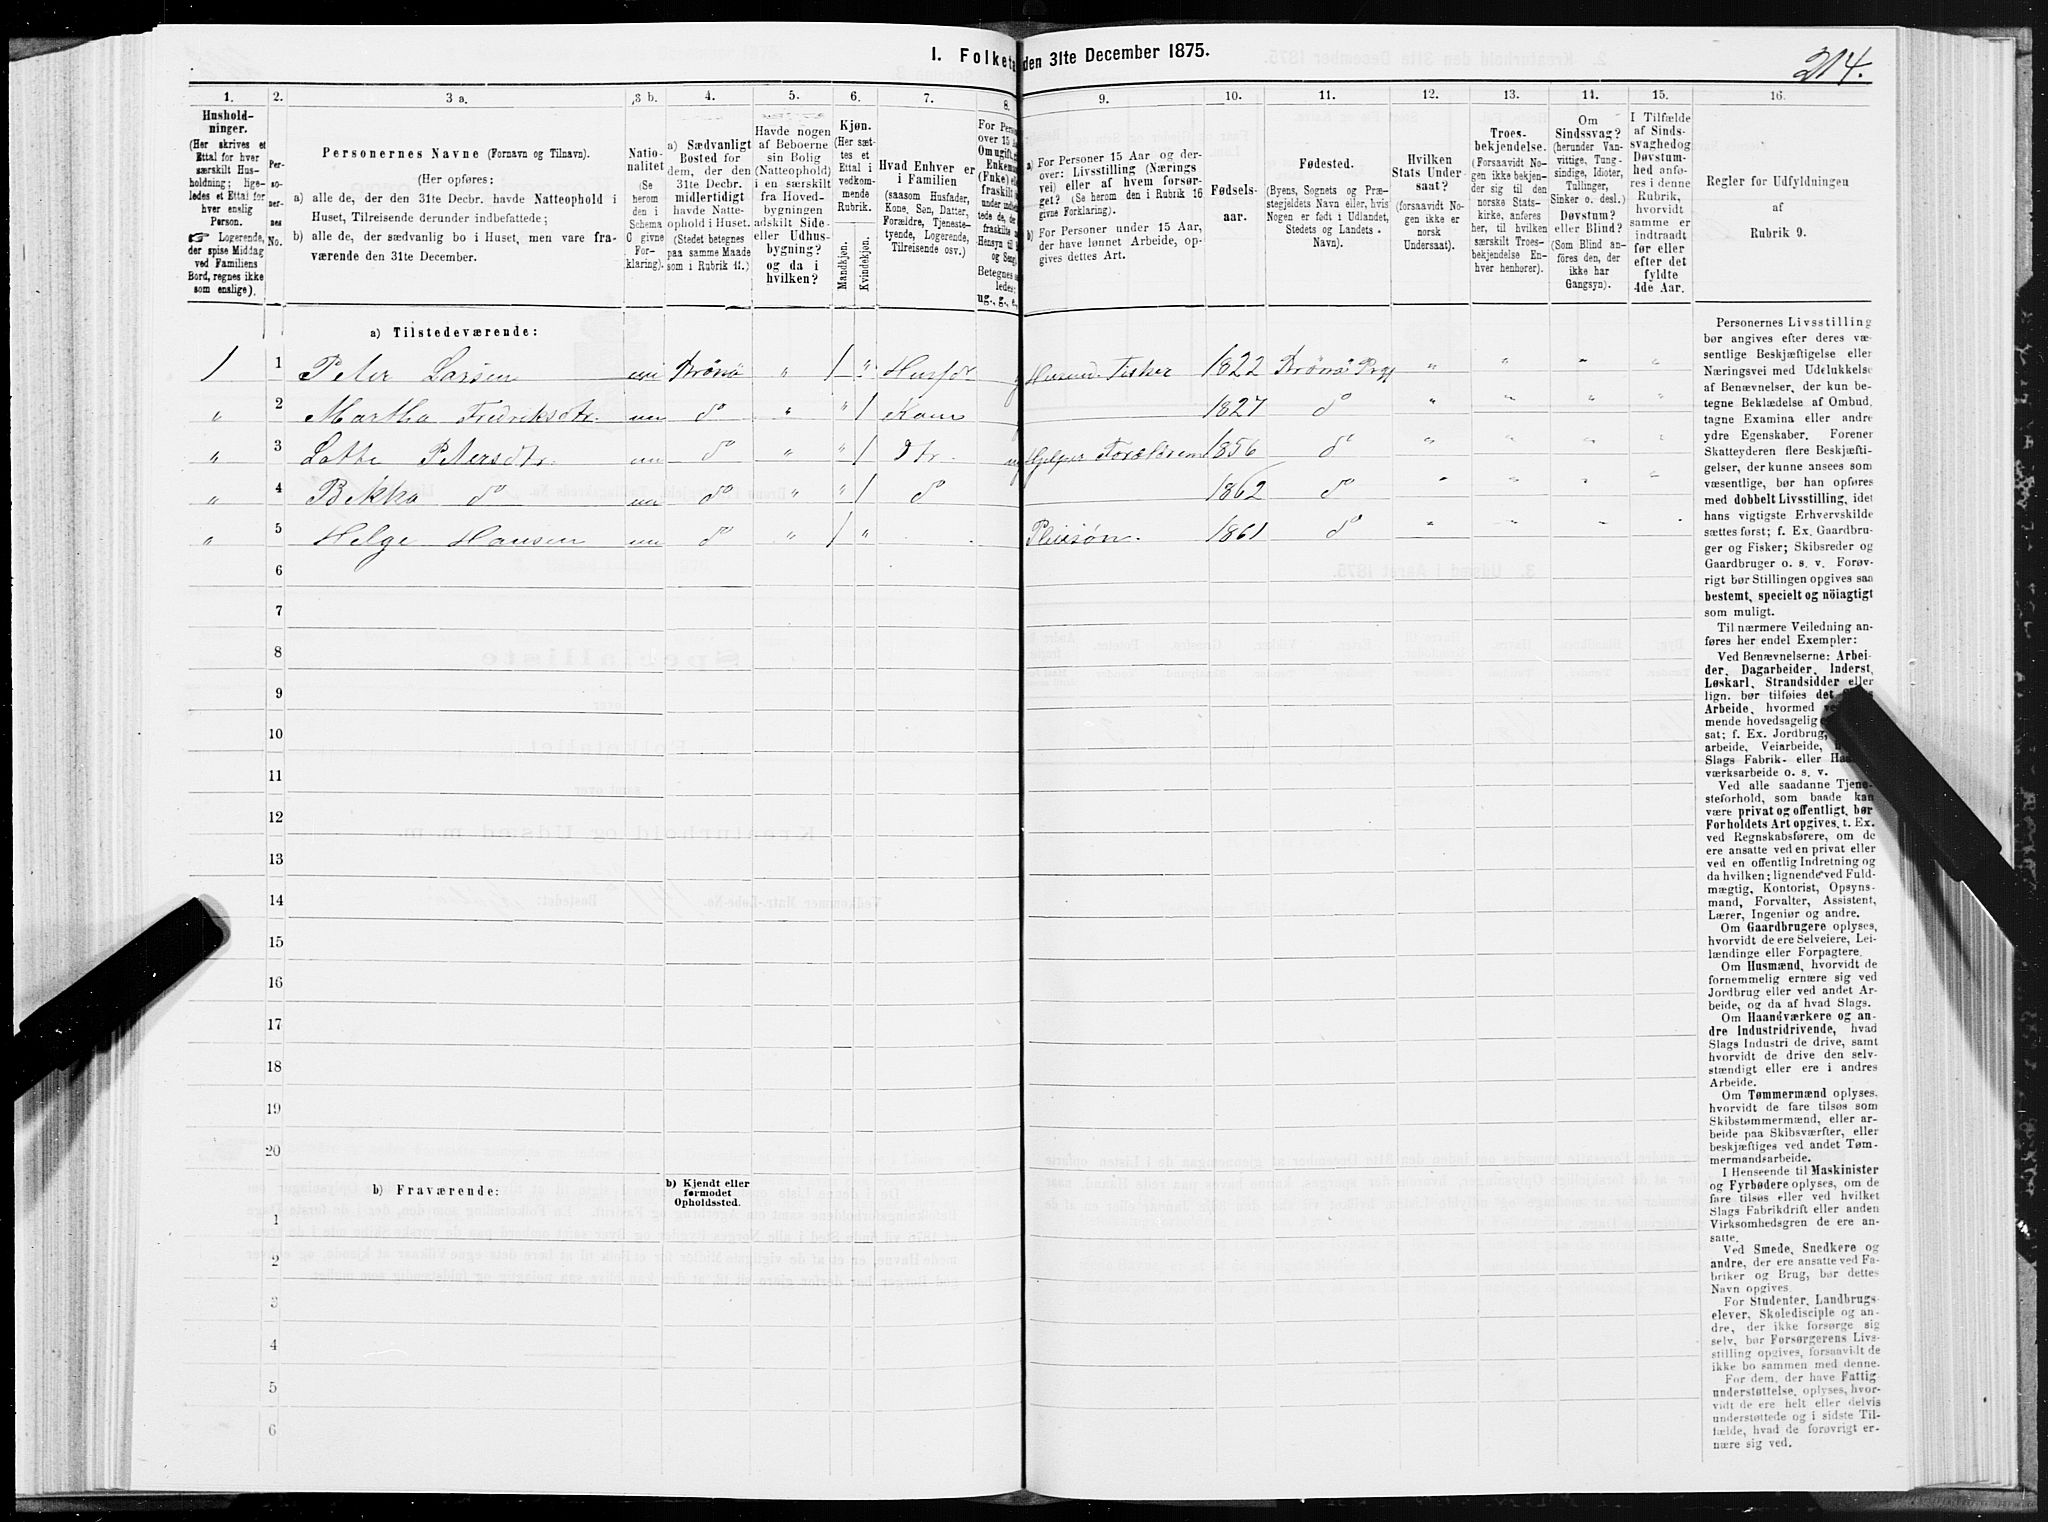 I. Folketa den 31te December 1875.
214.
1. 2. 3 a. 3 b. 4. 5. 6. 7. 8. 9. 10. 11. 12. 13. 14. 15. 16.
Husholdninger. (Her skrives et Ettal for hver særskilt Husholdning; ligeledes et Ettal for hver enslig Person. ☞ Logerende, der spise Middag ved Familiens Bord, regnes ikke som enslige).
Personernes No.
Personernes Navne (Fornavn og Tilnavn).
(Her opføres:
a) alle de, der den 31te Decbr. havde Natteophold i Huset, Tilreisende derunder indbefattede;
b) alle de, der sædvanlig bo i Huset, men vare fraværende den 31te December.
Nationalitet (Se herom den i Schema C givne Forklaring).
a) Sædvanligt Bosted for dem, der den 31te Decbr. midlertidigt havde Natteophold i Huset. (Stedet betegnes paa samme Maade som i Rubrik 11.)
Havde nogen af Beboerne sin Bolig (Natteophold) i en særskilt fra Hovedbygningen adskilt Side- eller Udhusbygning? og da i hvilken?
Kjøn. (Her sættes et Ettal i vedkommende Rubrik. Mandkjøn. Kvindekjøn.
Hvad Enhver er i Familien (saasom Husfader, Kone, Søn, Datter, Forældre, Tjenestetyende, Logerende, Tilreisende osv.)
a) For Personer 15 Aar og derover: Livsstilling (Næringsvei) eller af hvem forsørget? (Se herom den i Rubrik 16 givne Forklaring).
b) For Personer under 15 Aar, der have lønnet Arbeide, opgives dettes Art.
Fødselsaar.
Fødested. (Byens, Sognets og Præstegjeldets Navn eller, hvis Nogen er født i Udlandet, Stedets og Landets Navn).
Hvilken Stats Undersaat? (forsaavidt Nogen ikke er norsk Undersaat).
Troesbekjendelse. (Forsaavidt Nogen ikke bekjender sig til den norske Statskirke, anføres her, til hvilken særskilt Troesbekjendelse Enhver henhører).
Om Sindssvag? (herunder Vanvittige, Tungsindige, Idioter, Tullinger, Sinker o. desl.) Døvstum? eller Blind? (Som Blind anføres den, der ikke har Gangsyn).
I Tilfælde af Sindssvaghed og Døvstumhed anføres i denne Rubrik, hvorvidt samme er indtraadt før eller efter det fyldte 4de Aar.
Regler for Udfyldningen af Rubrik 9.
a) Tilstedeværende:
1 1 Peter Larsen Drönö " 1 " Husf Fisker 1822 Drönö " " " "
" 2 Martha Fredriksdtr. do " " 1 Kone 1827 do " " " "
" 3 Petersdtr. do " " 1 Dtr. 1856 do " " " "
" 4 Bekka do do " " 1 do 1862 do " " " "
" 5 Helge Hansen do " 1 " 1861 do " " " "
6
7
8
9
10
11
12
13
14
15
16
17
18
19
20
b) Fraværende: b) Kjendt eller formodet Opholdssted.
1
2
3
4
5
6
Personernes Livsstilling bør angives efter deres væsentlige Beskjæftigelse eller Næringsvei med Udelukkelse af Benævnelser, der kun betegne Beklædelse af Ombud, tagne Examina eller andre ydre Egenskaber. Forener Skatteyderen flere Beskjæftigelser, der kunne ansees som væsentlige, bør han opføres med dobbelt Livsstilling, idet hans vigtigste Erhvervskilde sættes først; f. Ex. Gaardbruger og Fisker; Skibsreder og Gaardbruger o. s. v. Forøvrigt bør Stillingen opgives saa bestemt, specielt og nöiagtigt som muligt.
Til nærmere Veiledning anføres her endel Exempler:
Ved Benævnelserne: Arbeider, Dagarbeider, Inderst, Løskarl, Strandsidder eller lign. bør tilføies det Arbeide, hvormed hovedsagelig f. Ex. Jordbrug, Veiarbeide, Slags Fabrik- eller Haandværksarbeide o. s. v.
Ved alle saadanne Tjenesteforhold, som baade kan være privat og offentligt, bør Forholdets Art opgives, t. Ex. ved Regnskabsførere, om de ere ansatte ved en privat eller ved en offentlig Indretning og da hvilken; lignende ved Fuldmægtig, Kontorist, Opsynsmand, Forvalter, Assistent, Lærer, Ingeniør og andre.
Om Gaardbrugere oplyses, hvorvidt de ere Selveiere, Leilændinge eller Forpagtere.
Om Husmænd, hvorvidt de fornemmelig ernære sig ved Jordbrug eller ved andet Arbeide, og da af hvad Slags.
Om Haandværkere og andre Industridrivende, hvad Slags Industri de drive, samt hvorvidt de drive den selvstændigt eller ere i andres Arbeide.
Om Tømmermænd oplyses, hvorvidt de fare tilsøs som Skibstømmermænd, eller arbeide paa Skibsværfter, eller beskjæftiges ved andet Tømmermandsarbeide.
I Henseende til Maskinister og Fyrbødere oplyses, om de fare tilsøs eller ved hvilket Slags Fabrikdrift eller anden Virksomhedsgren de ere ansatte.
Ved Smede, Snedkere og andre, der ere ansatte ved Fabriker og Brug, bør dettes Navn opgives.
For Studenter, Landbrugselever, Skoledisciple og andre, der ikke forsørge sig selv, bør Forsørgerens Livsstilling opgives, forsaavidt de ikke bo sammen med denne.
For dem, der have Fattigunderstøttelse, oplyses, hvorvidt de ere helt eller delvis understøttede og i sidste Tilfælde, hvad de forøvrigt ernære sig ved.